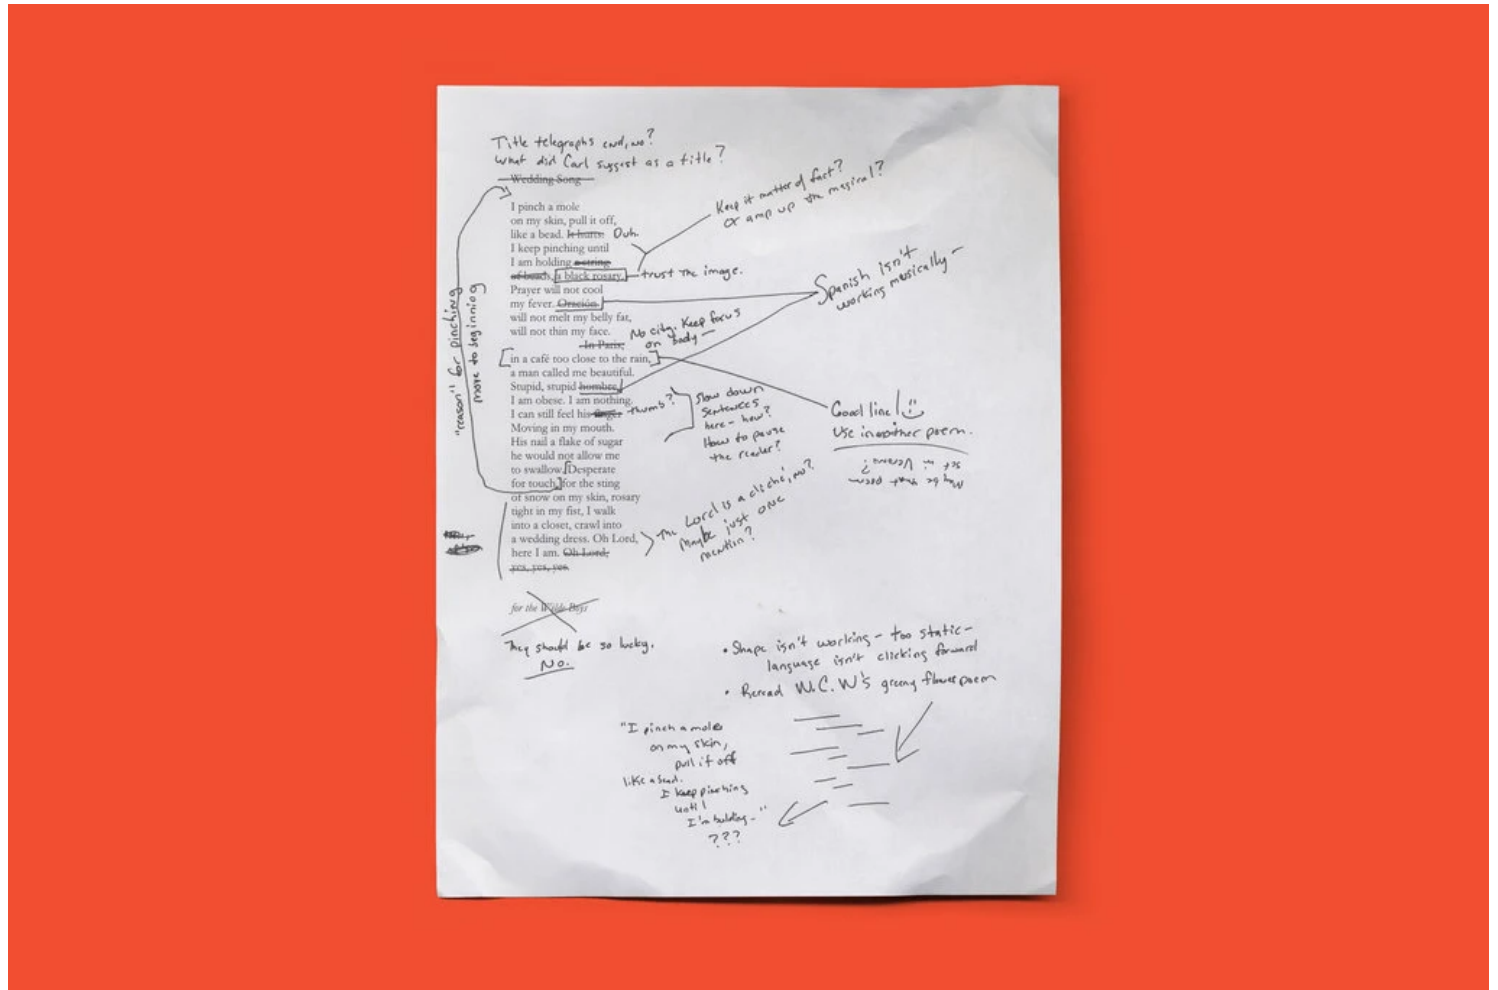 Title telegraphs end, no?
What did Carl suggest as a title?
Wedding Song
I pinch a mole
on my skin, pull it off,
like a bead. It hurts. Duh.
I keep pinching until
I am holding a string
of beads, a black rosary.
Prayer will not cool
my fever. Oración
will not melt my belly fat,
will not thin my face.
In Paris,
in a café too close to the rain,
a man called me beautiful.
Stupid, stupid hombre,
I am obese. I am nothing.
I can still feel his finger thumb?
Moving in my mouth.
His nail a flake of sugar
he would not allow me
to swallow. Desperate
for touch, for the sting
of snow on my skin, rosary
tight in my fist, I walk
into a closet, crawl into
a wedding dress. Oh Lord,
here I am. Oh Lord,
yes, yes, yes.
for the Wilde Boys
They should be so lucky.
No.
"reason" for pinching
move to beginning
Keep it matter of fact?
or amp up the magical?
trust the image.
Spanish isn't
working musically –
No city. Keep focus
on body –
Slow down
sentences
here – how?
How to pause
the reader?
Good line!
Use in another poem.
Maybe that poem
set in Verona?
The Lord is a cliché, no?
Maybe just ONE
mention?
• Shape isn't working – too static –
language isn't clicking forward
• Reread W.C.W's greeny flower poem
"I pinch a mole
on my skin,
pull it off
like a bead.
I keep pinching
until
I'm holding – "
???